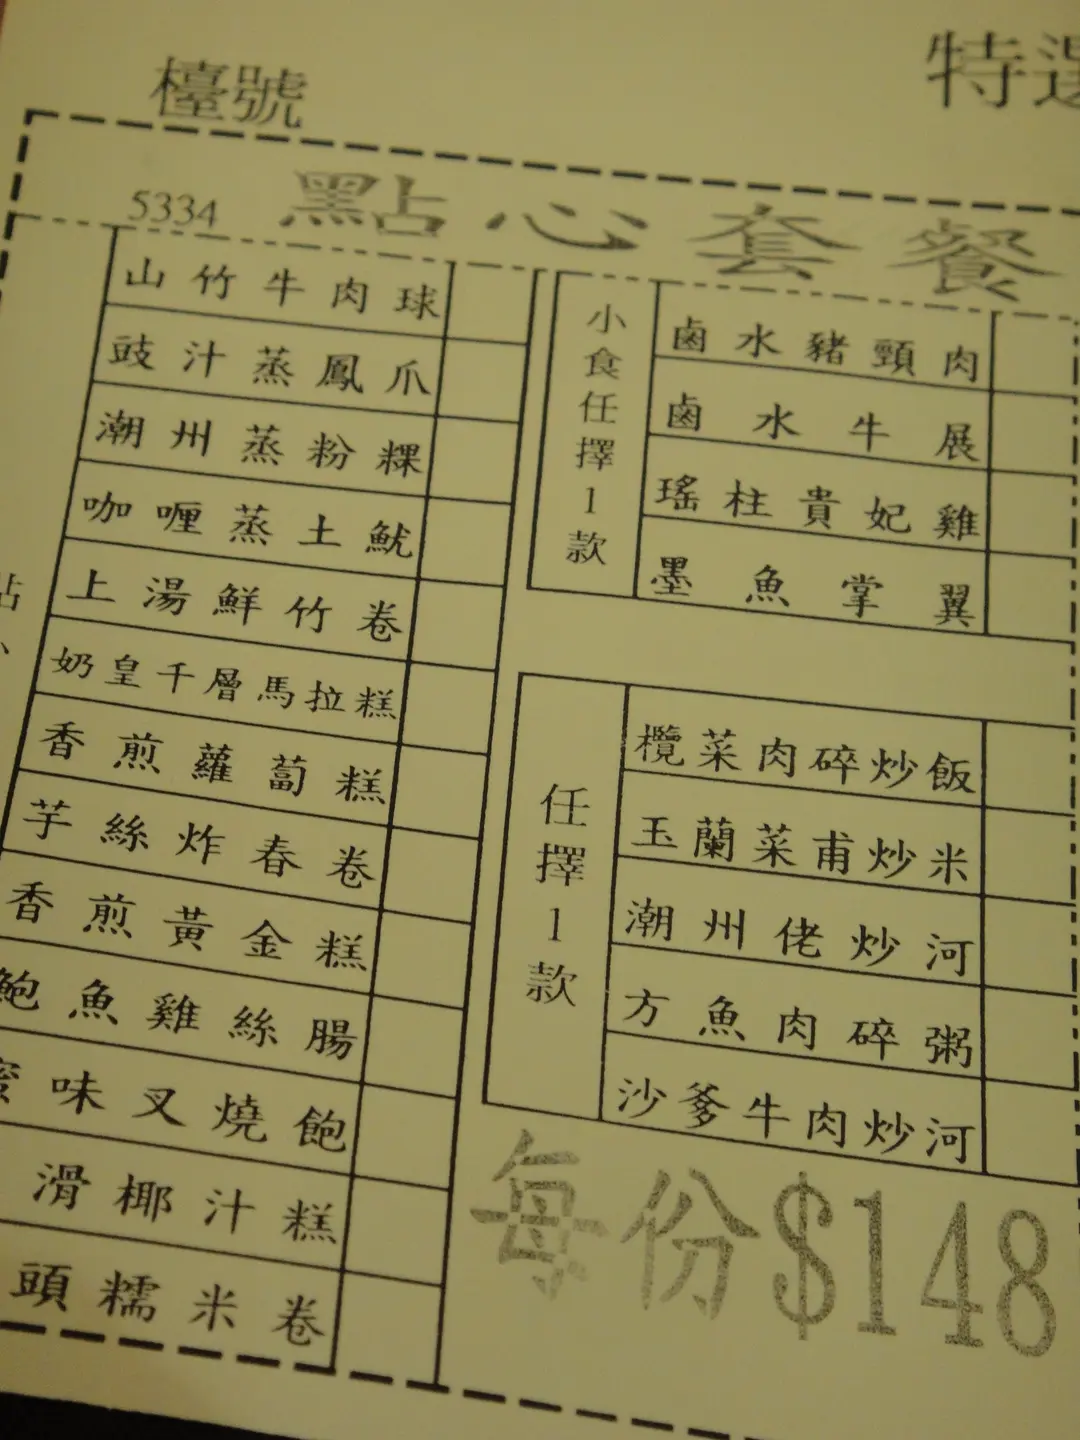 檯號
特選
5334
點心套餐
山竹牛肉球
豉汁蒸鳳爪
潮州蒸粉粿
咖喱蒸土魷
上湯鮮竹卷
奶皇千層馬拉糕
香煎蘿蔔糕
芋絲炸春卷
香煎黃金糕
鮑魚雞絲腸
味叉燒飽
滑椰汁糕
頭糯米卷
小食任擇1款
鹵水豬頸肉
鹵水牛展
瑤柱貴妃雞
墨魚掌翼
任擇1款
欖菜肉碎炒飯
玉蘭菜甫炒米
潮州佬炒河
方魚肉碎粥
沙爹牛肉炒河
每份$148